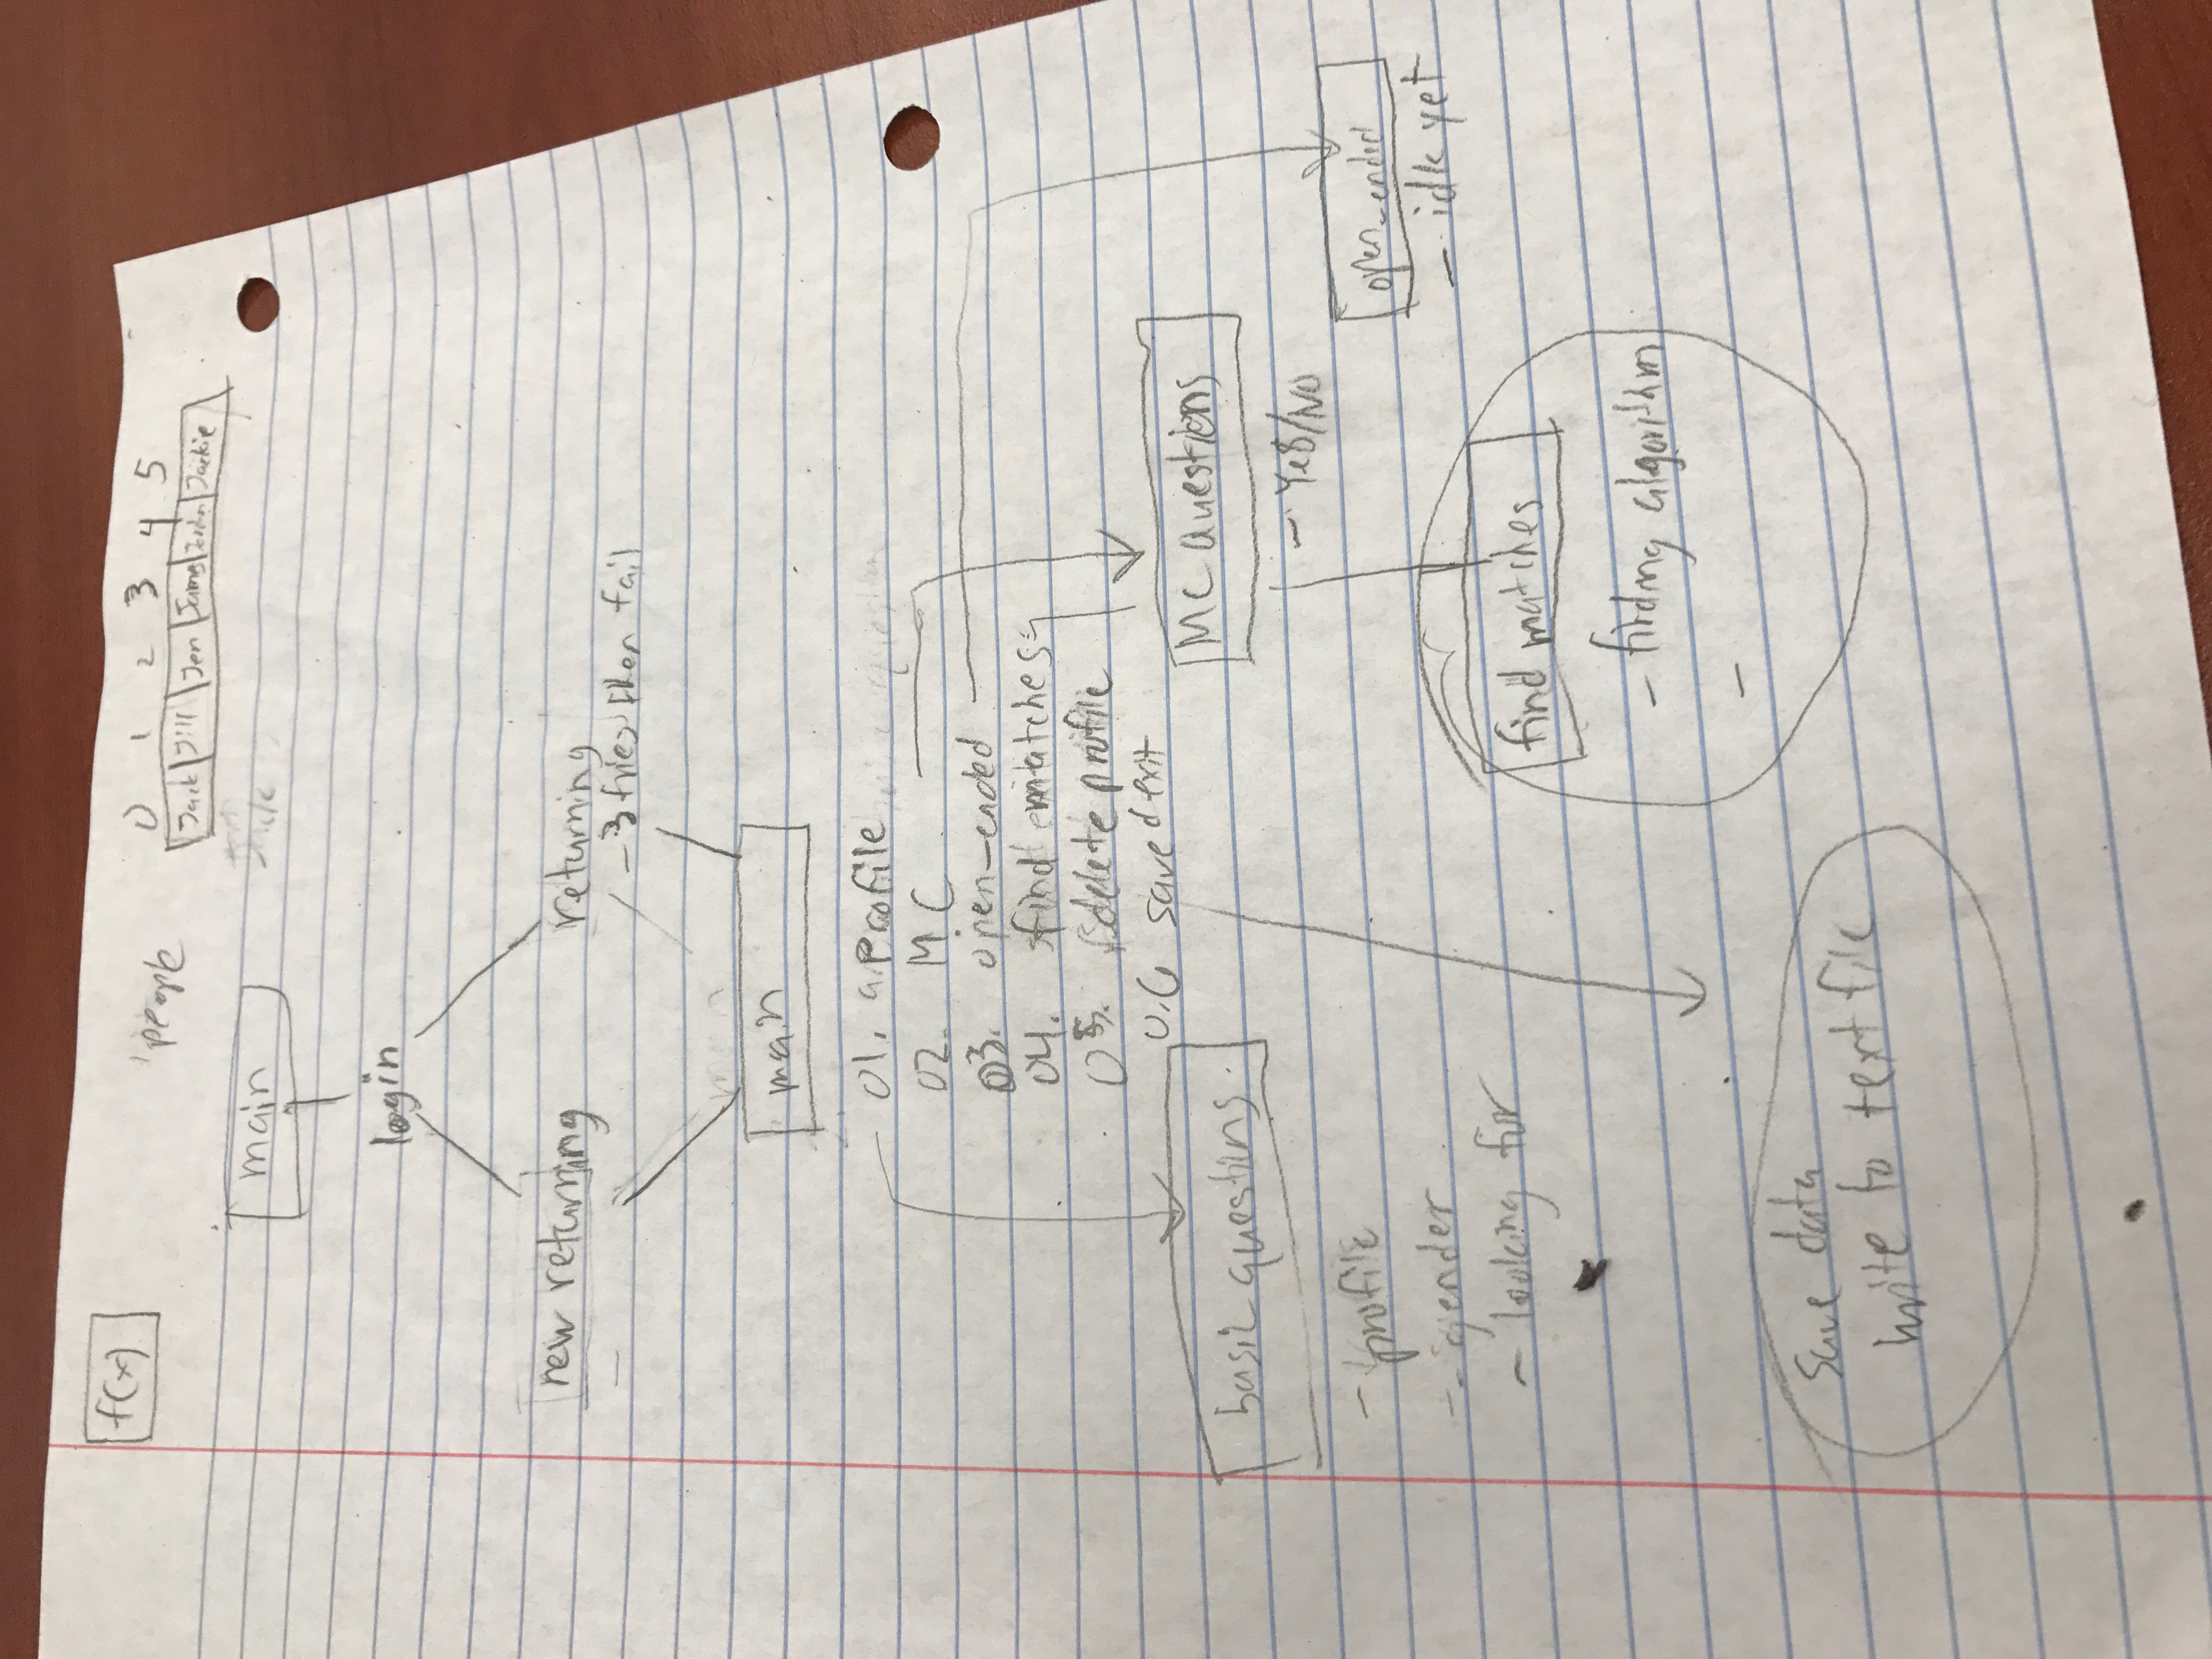 f(x)
people
0 1 2 3 4 5
Jack Jill Jen James Jordan Jackie
main
login
new returning
returning
- 3 tries then fail
main
01. profile
02. MC
03. open-ended
04. find matches
05. delete profile
0.6 save d exit
basic questions
- profile
- gender
- looking for
MC Questions
- Yes/No
open-ended
- idk yet
find matches
- finding algorithm
-
save data
write to text file